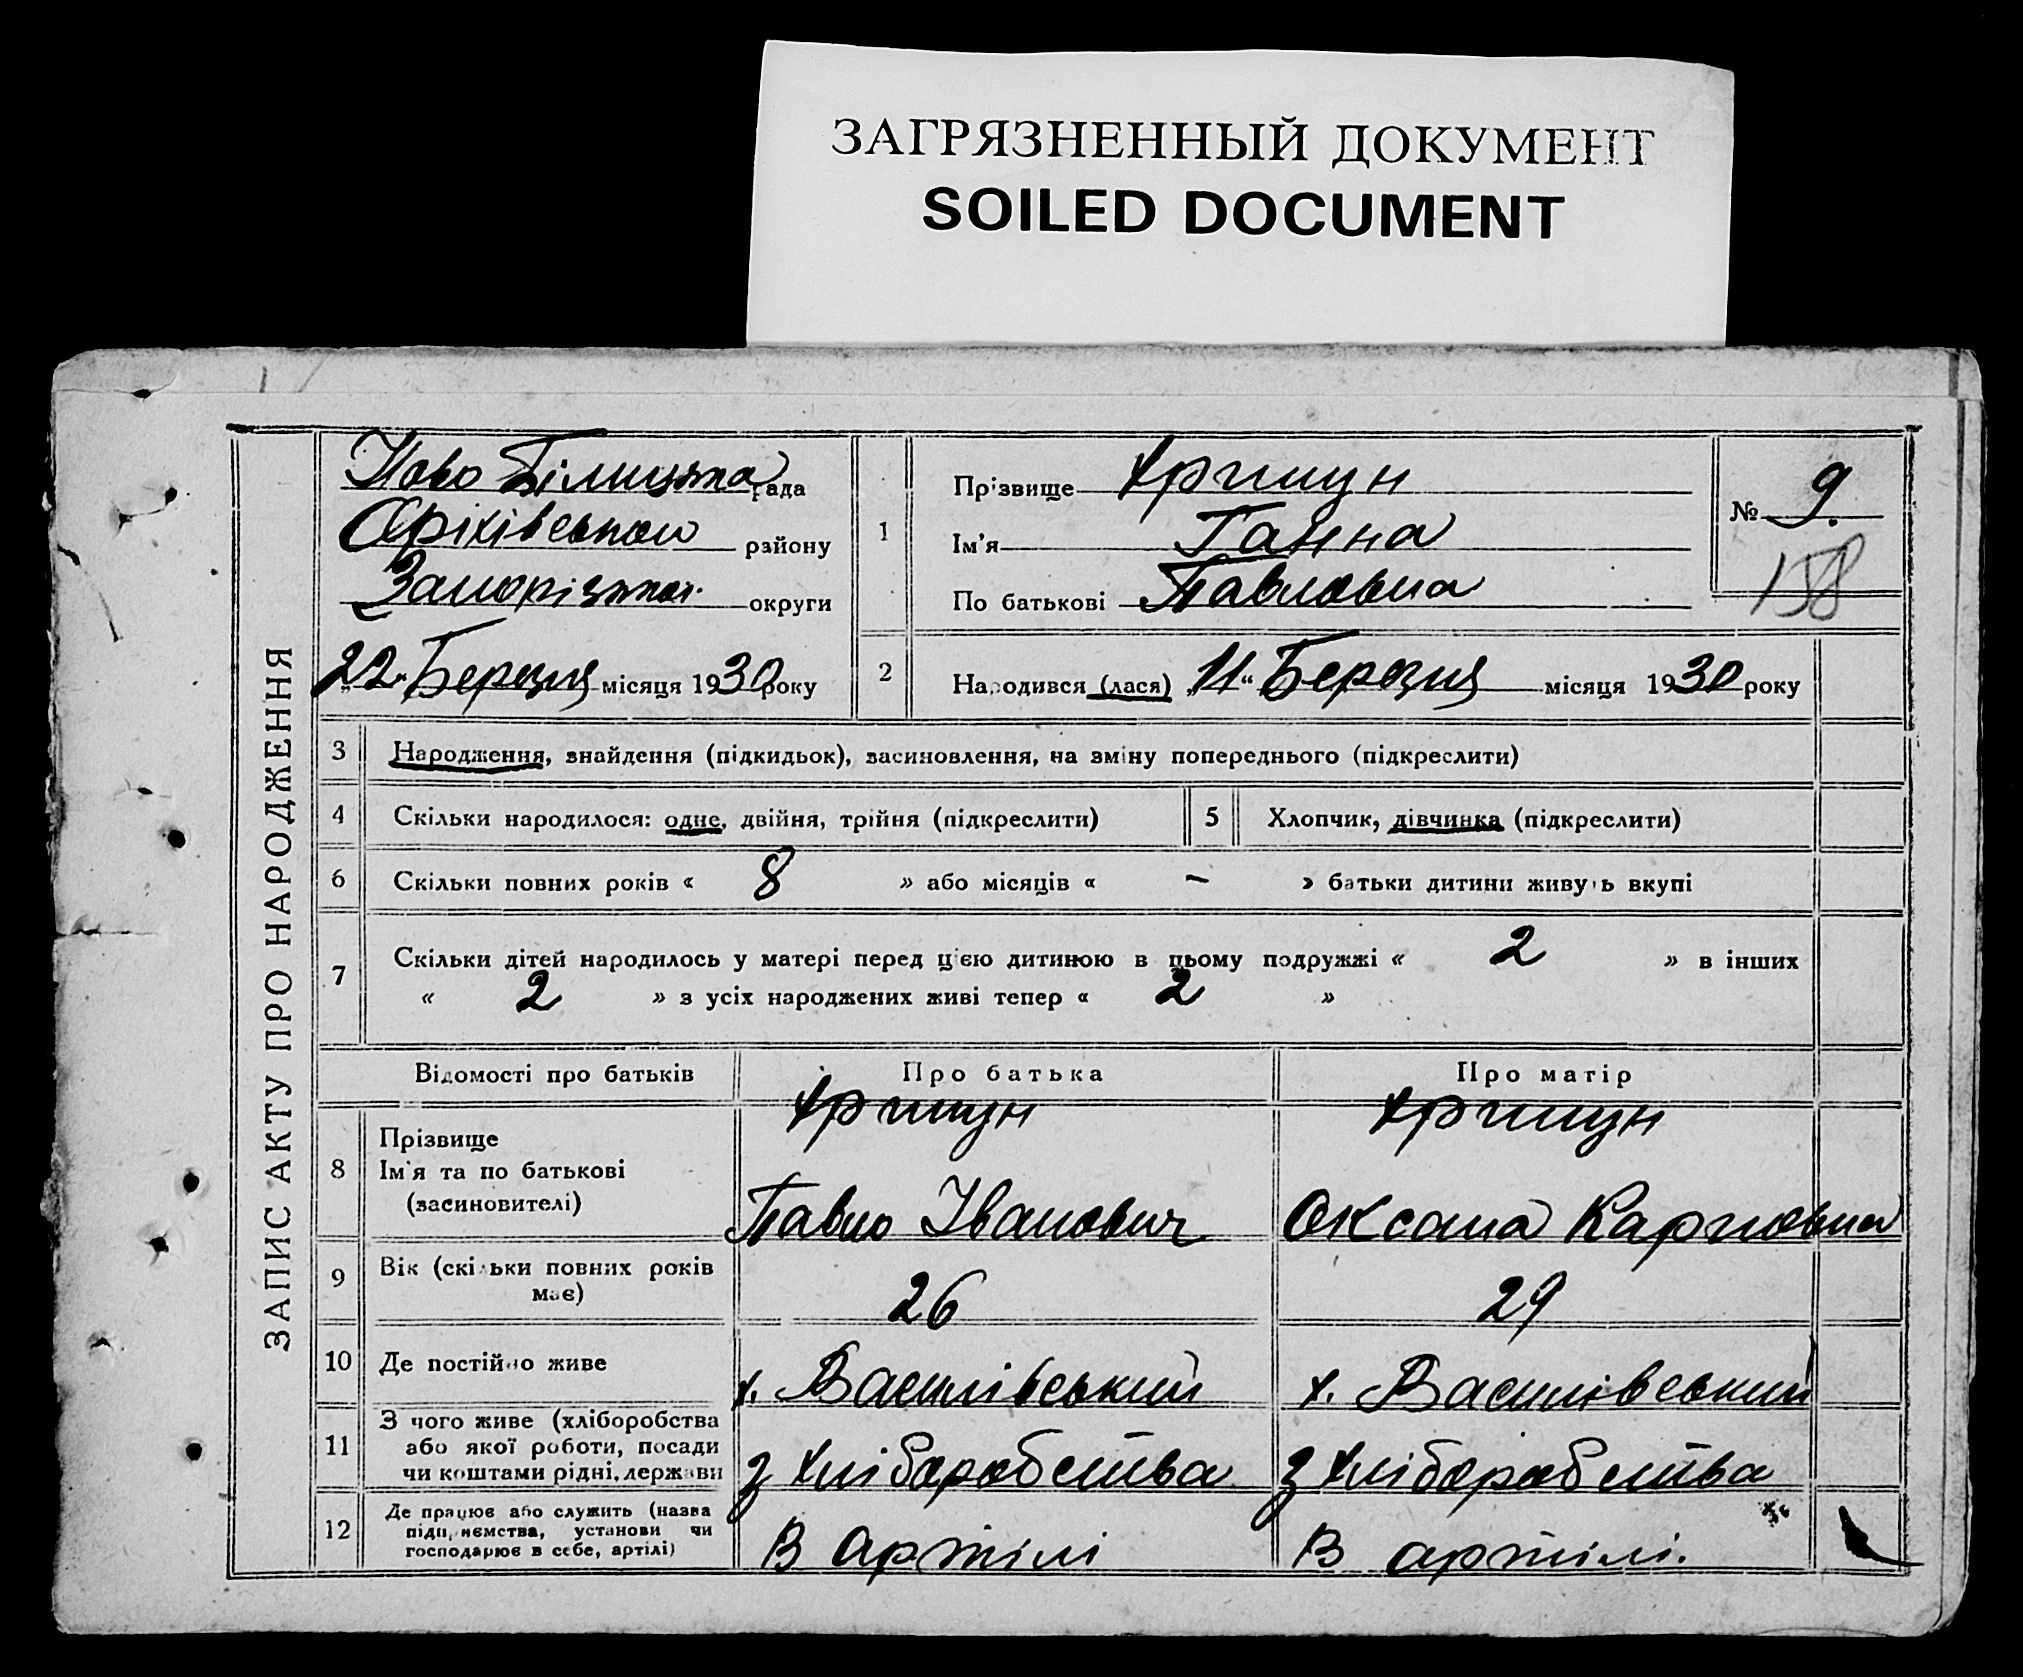 ЗАГРЯЗНЕННЫЙ ДОКУМЕНТ
SOILED DOCUMENT
ЗАПИС АКТУ ПРО НАРОДЖЕННЯ
Ново Білицька рада
Оріхівської району
Запорізької округи
„22“ Березня місяця 1930 року
1
Прізвище Хрипун
Ім'я Ганна
По батькові Павловна
№ 9.
158
2
Народився (лася) „11“ Березня місяця 1930 року
3 Народження, знайдення (підкидьок), засиновлення, на зміну попереднього (підкреслити)
4 Скільки народилося: одне, двійня, трійня (підкреслити) 5 Хлопчик, дівчинка (підкреслити)
6 Скільки повних років « 8 » або місяців « – » батьки дитини живуть вкупі
7 Скільки дітей народилось у матері перед цією дитиною в цьому подружжі « 2 » в інших
« 2 » з усіх народжених живі тепер « 2 »
Відомості про батьків Про батька Про матір
8 Прізвище Хрипун Хрипун
Ім'я та по батькові
(засиновителі) Павло Іванович Оксана Карповна
9 Вік (скільки повних років
має) 26 29
10 Де постійно живе х. Василівський х. Василівський
11 З чого живе (хліборобства
або якої роботи, посади
чи коштами рідні, держави з хліборобства з хліборобства
12 Де працює або служить (назва
підприємства, установи чи
господарює в себе, артілі) В артілі В артілі.